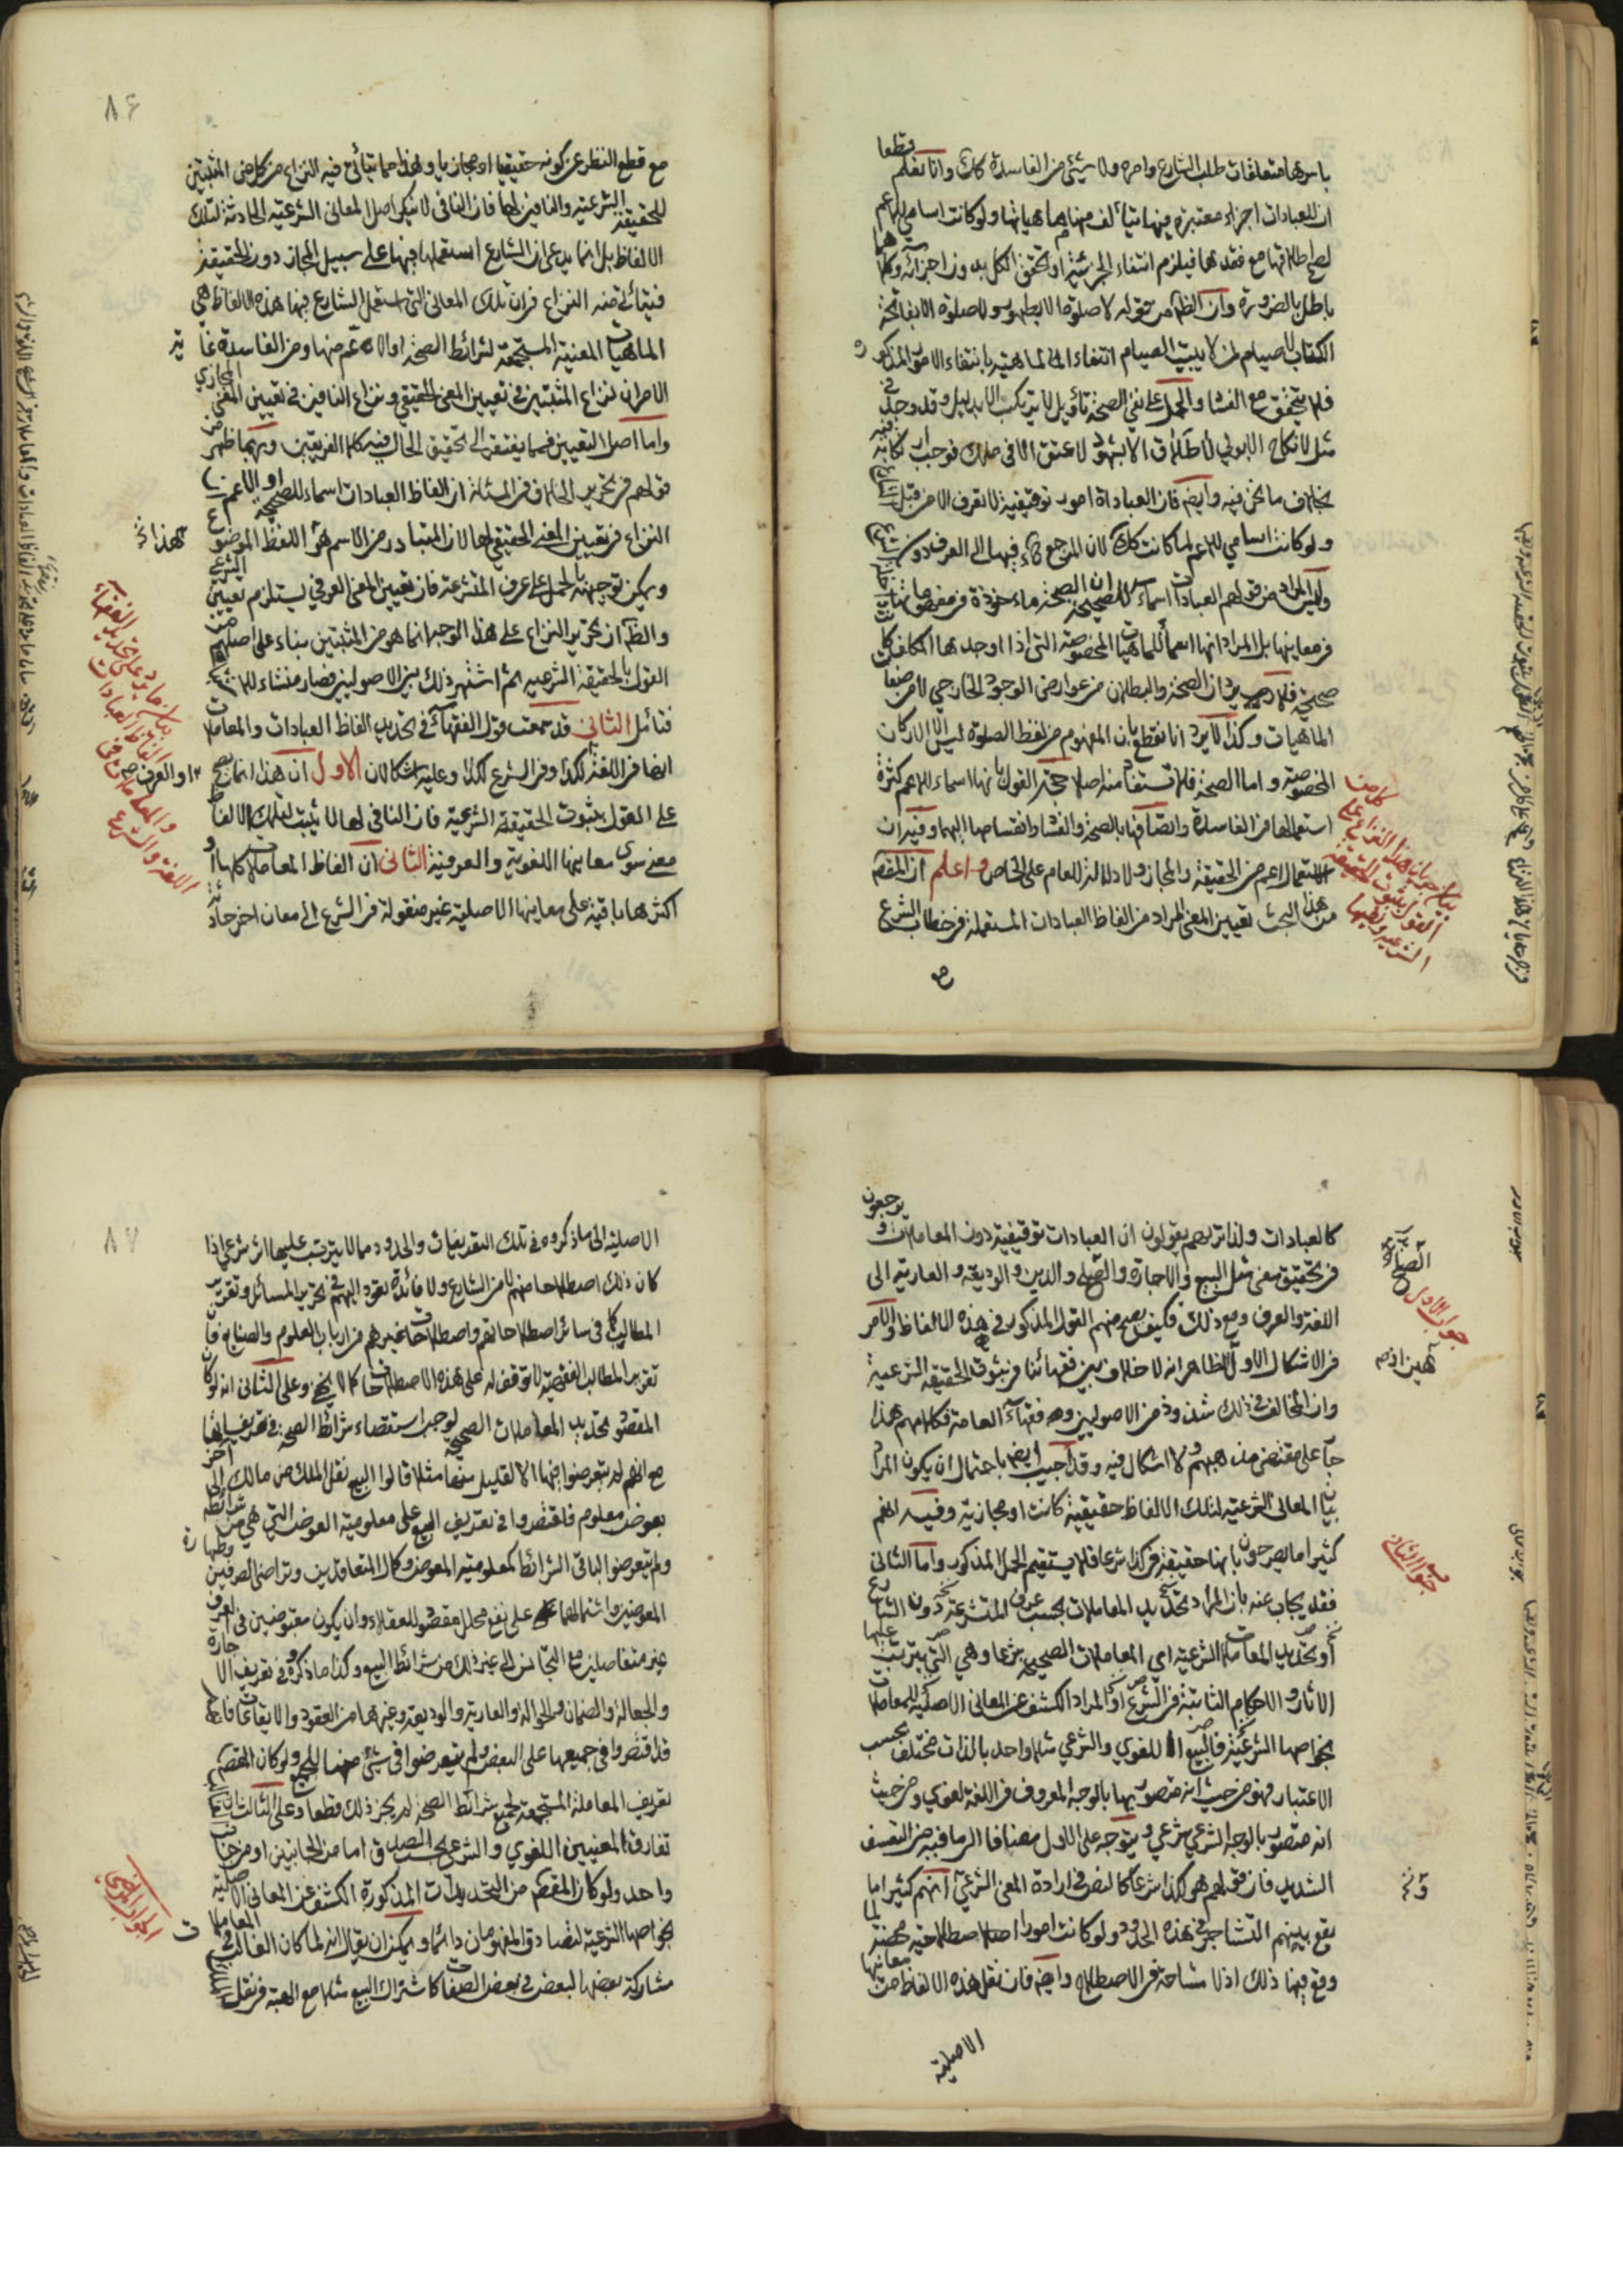 قطعا
باسرها متعلقات طلب الشارع وامره ولا شيء من الفاسدة كك وانا نعلم
ان للعبادات اجزاء معتبرة فيها يتألف منها هياتها ولو كانت اسامي للاعم
لصح اطلاقها مع فقدها فيلزم انتفاء الجزئية او تحقق الكل بدون اجزائه وكلاهما
باطل بالضرورة وان الظ من قوله لا صلوة الا بطهور ولا صلوة الا بفاتحة
الكتاب لا صيام لمن لا يبيت الصيام انتفاء الماهية بانتفاء الامور المذكورة
فلا يتحقق مع الفساد والحمل على نفي الصحة تأويل لا يرتكب الا بدليل وقد وجد في
مثل لا نكاح الا بولي لا طلاق الا بشهود لا عتق الا في ملك فوجب ارتكابه فيه
بخلاف ما نحن فيه وايضم فان العبادات امور توقيفية لا تعرف الا من قبل الشارع
ولو كانت اسامي للاعم لما كانت كك لان المرجع ح فيها الى العرف دون الشارع
وليس المراد من قولهم العبادات اسماء للصحيح ان الصحة ماخوذة في مفهوماتها داخلة
في معاينها بل المراد انها اسماء للماهيات المخصوصة التي اذا اوجدها المكلف كان
صحيحة فلا يرد ان الصحة والبطلان من عوارض الوجود الخارجي لا من صفات
الماهيات وكذا لا يرد انا نقطع بان المفهوم من لفظ الصلوة ليس الا الاركان
المخصوصة واما الصحة فلا تستفاد منه اصلا حجة القول بانها اسماء للاعم كثرة
استعمالها في الفاسدة واتصافها بالصحة والفساد وانقسامها اليهما وفيه ان
الاستعمال اعم من الحقيقة والمجاز ولا دلالة للعام على الخاص واعلم ان المقصم
من هذا البحث تعيين المعنى المراد من الفاظ العبادات المستعملة في خطاب الشرع
مع
بيان جريان هذا النزاع على كل من
القول بثبوت الحقيقة
الشرعية ونفيها
٨٦
مع قطع النظر عن كونه حقيقيا او مجازيا وهذا مما يتأتى فيه النزاع من كل من المثبتين
للحقيقة الشرعية والنافين لها فان النافي لا ينكر اصل المعاني الشرعية الحادثة لتلك
الالفاظ بل انما يدعي ان الشارع استعملها فيها على سبيل المجاز دون الحقيقة
فيتأتى منه النزاع في ان تلك المعاني التي استعمل الشارع فيها هذه الالفاظ هي
الماهيات المعينة المستجمعة لشرائط الصحة او الاعم منها ومن الفاسدة غاية
الامر ان نزاع المثبتين في تعيين المعنى الحقيقي ونزاع النافين في تعيين المعنى المجازي
واما اصل التعيين فمما يفتقر الى تحقيق الحال فيه كلا الفريقين وربما ظهر من
قولهم في تحرير الخلاف في المسئلة ان الفاظ العبادات اسماء للصحيحة او الاعم
النزاع في تعيين المعنى الحقيقي لها لان المتبادر من الاسم هو اللفظ الموضوع
ويمكن توجيهه بالحمل على عرف المتشرعة فان تعيين المعنى العرفي يستلزم تعيين الشرعي
والظ ان تحرير النزاع على هذا الوجه انما هو من المثبتين بناء على اصلهم من
القول بالحقيقة الشرعية ثم اشتهر ذلك بين الاصوليين فصار منشاء للاشتباه
فتأمل الثاني قد سمعت قول الفقهاء في تحديد الفاظ العبادات والمعاملات
انها في اللغة لكذا وفي الشرع لكذا وعليه اشكالان الاول ان هذا انما يصح
على القول بثبوت الحقيقة الشرعية فان النافي لها لا يثبت لتلك الالفاظ
معنى سوى معاينها اللغوية والعرفية الثاني ان الفاظ المعاملات كلها او
اكثرها باقية على معاينها الاصلية غير منقولة في الشرع الى معان اخر حادثة
بيان ما يرد على تحديد الفقهاء
الفاظ العبادات
والمعاملات في
اللغة والشرع
او العرف صح
يرجعون
كالعبادات ولذا تريهم يقولون ان العبادات توقيفية دون المعاملات و
في تحقيق معنى مثل البيع والاجارة والصلح والدين والوديعة والعارية الى
اللغة والعرف ومع ذلك فكيف يصح منهم القول المذكور في هذه الالفاظ والامر
في الاشكال الاول الظاهر انه لا خلاف بين فقهائنا في ثبوت الحقيقة الشرعية
وان المخالف في ذلك شذوذ من الاصوليين وهم فقهاء العامة فكلامهم هذا
جار على مقتضى مذهبهم ولا اشكال فيه وقد اجيب ايضم باحتمال ان يكون المراد
بيان المعاني الشرعية لتلك الالفاظ حقيقية كانت او مجازية وفيه انهم
كثيرا ما يصرحون بانها حقيقة في كذا شرعا فلا يستقيم الحمل المذكور واما الثاني
فقد يجاب عنه بان المراد تحديد المعاملات بحسب عرف المتشرعة دون الشارع
او تحديد المعاملات الشرعية اي المعاملات الصحيحة شرعا وهي التي يترتب عليها
الآثار والاحكام الثابتة في الشرع او المراد الكشف عن المعاني الاصلية للمعاملات
بخواصها الشرعية فالبيع اللغوي والشرعي مثلا واحد بالذات مختلف بحسب
الاعتبار فهو من حيث انه متصور بالوجه المعروف في اللغة لغوي ومن حيث
انه متصور بالوجه الشرعي شرعي ويتوجه على الاول مضافا الى ما فيه من التعسف
الشديد فان قولهم هو كذا شرعا كالنص في ارادة المعنى الشرعي انهم كثيرا ما
يقع بينهم التشاجر في هذه الحدود ولو كانت امورا اصطلاحية محضة لما
وقع فيها ذلك اذ لا مشاحة في الاصطلاح وايضم فان نقل هذه الالفاظ من معانيها
الاصلية
جواب الاول
جواب الثاني
٨٧
الاصلية الى ما ذكروه في تلك التعريفات والحدود مما لا يترتب عليها اثر شرعي اذا
كان ذلك اصطلاحا منهم لا من الشارع ولا فائدة تعود اليهم في تحرير المسائل وتقرير
المطالب كما في سائر اصطلاحاتهم واصطلاحات غيرهم من ارباب العلوم والصنايع فان
تقرير المطالب الفقهية لا توقف له على هذه الاصطلاحات كما لا يخفى وعلى الثاني انه لو كان
المقصود تحديد المعاملات الصحيحة لوجب استقصاء شرائط الصحة في تعريفاتها
مع انهم لم يتعرضوا فيها الا لقليل منها مثلا قالوا البيع نقل الملك من مالك الى آخر
بعوض معلوم فاقتصروا في تعريف البيع على معلومية العوض التي هي من شرائطه
ولم يتعرضوا لباقي الشرائط كمعلومية المعوض وكمال المتعاقدين وتراضي الطرفين وطهارة
العوضين واشتمالهما على نفع محلل مقصود للعقلاء وان يكون مقبوضين في الصرف
غير متفاضلين مع التجانس الى غير ذلك من شرائط البيع وكذا ما ذكروه في تعريف الاجارة
والجعالة والضمان والحوالة والعارية والوديعة وغيرها من العقود والايقاعات فانهم
قد اقتصروا في جميعها على البعض ولم يتعرضوا في شيء منها للجميع ولو كان المقصم
تعريف المعاملة المستجمعة لجميع شرائط الصحة لم يجز ذلك قطعا وعلى الثالث
تفارق المعنيين اللغوي والشرعي بحسب الصدق اما من الجانبين او من جانب
واحد ولو كان المقصم من التحديدات المذكورة الكشف عن المعاني الاصلية
بخواصها الشرعية لتصادق المفهومان دائما ويمكن ان يقال انه لما كان الغالب في المعاملات
مشاركة بعضها لبعض في بعض الصفات كاشتراك البيع مثلا مع الهبة في نقل